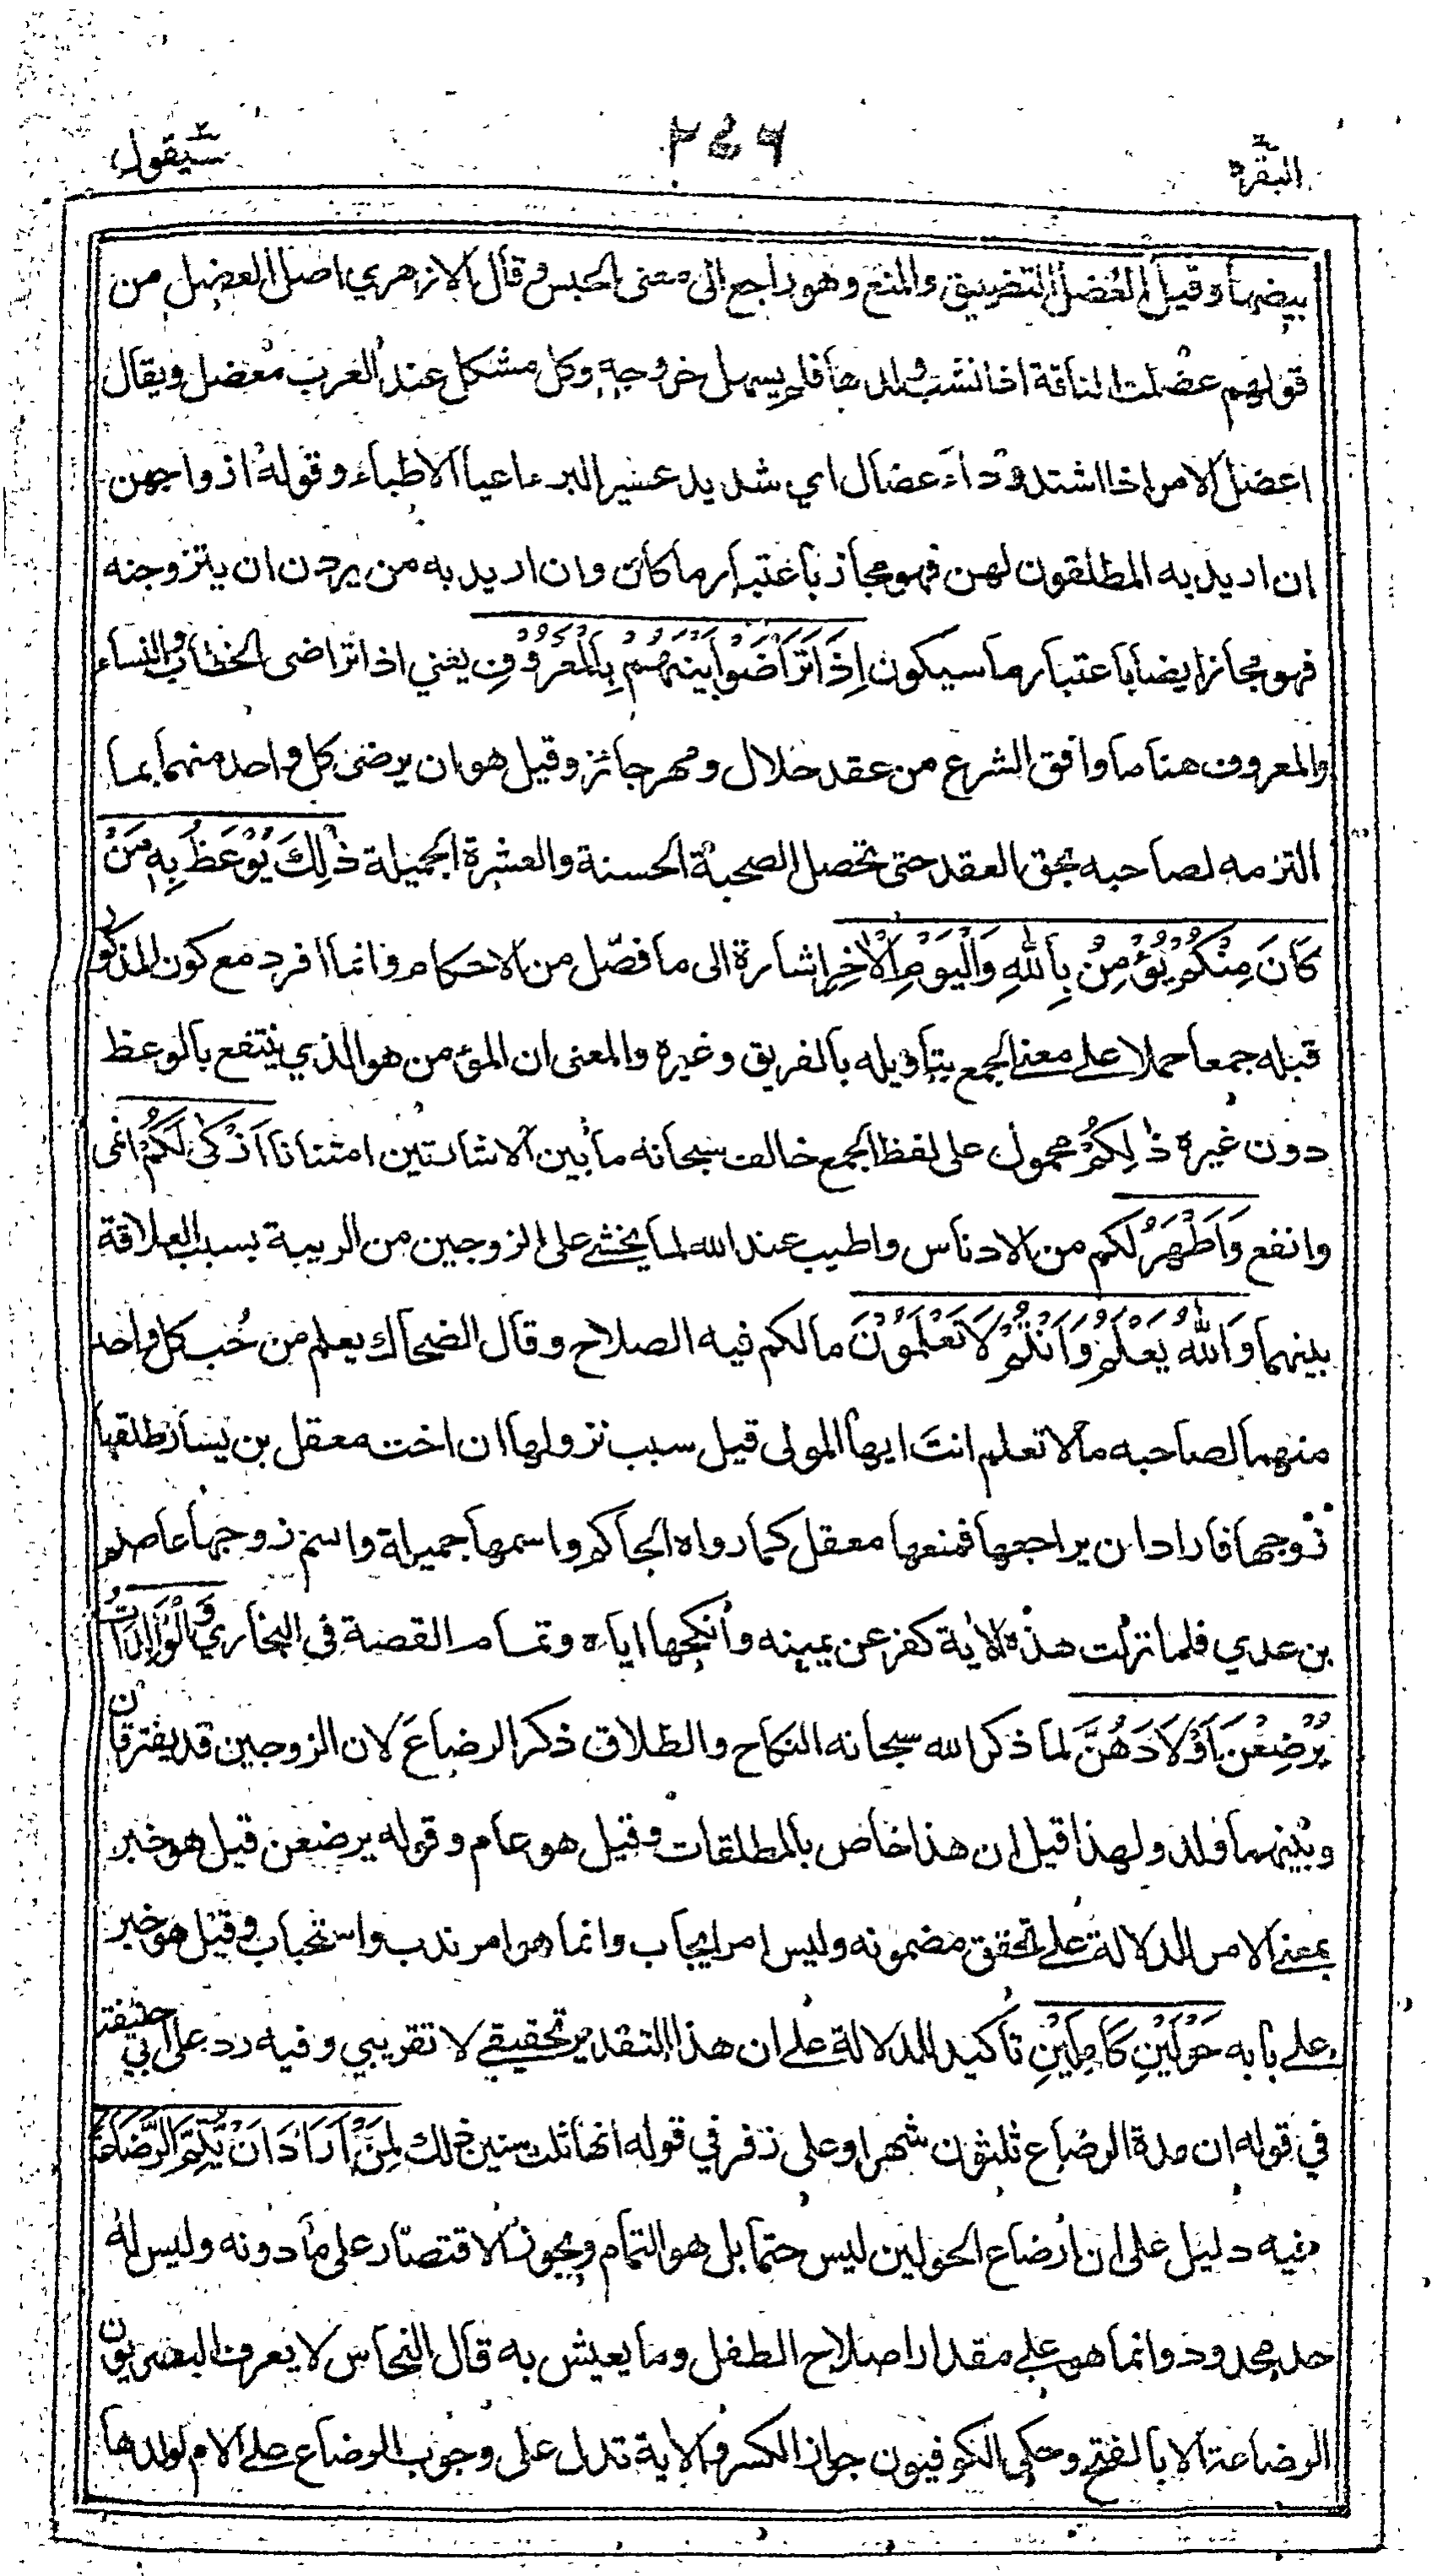 البقرة
٢٤٦
سيقول
ببيضها وقيل العضل التضييق والمنع وهو راجع الى معنى الحبس وقال الازهري اصل العضل من
قولهم عضلت الناقة اذا نشب ولدها فلم يسهل خروجه وكل مشكل عند العرب معضل ويقال
اعضل الامر اذا اشتد وداء عضال اي شديد عسير البرء اعيا الاطباء وقوله ازواجهن
ان اريد به المطلقون لهن فهو مجاز باعتبار ما كان وان اريد به من يردن ان يتزوجنه
فهو مجاز ايضا باعتبار ما سيكون اِذَا تَرَاضَوْا بَيْنَهُمْ بِالْمَعْرُوْفِ يعني اذا تراضى الخطاب والنساء
والمعروف هنا ما وافق الشرع من عقد حلال ومهر جائز وقيل هو ان يرضى كل واحد منهما بما
التزمه لصاحبه بحق العقد حتى تحصل الصحبة الحسنة والعشرة الجميلة ذٰلِكَ يُوْعَظُ بِهٖ مَنْ
كَانَ مِنْكُمْ يُؤْمِنُ بِاللّٰهِ وَالْيَوْمِ الْاٰخِرِ اشارة الى ما فصّل من الاحكام وانما افرد مع كون المذكور
قبله جمعا حملا على معنى الجمع بتأويله بالفريق وغيره والمعنى ان المؤمن هو الذي ينتفع بالوعظ
دون غيره ذٰلِكُمْ محمول على لفظ الجمع خالف سبحانه ما بين الاشارتين امتنانا اَزْكٰى لَكُمْ انمى
وانفع وَاَطْهَرُ لكم من الادناس واطيب عند الله لما يخشى على الزوجين من الريبة بسبب العلاقة
بينهما وَاللّٰهُ يَعْلَمُ وَاَنْتُمْ لَا تَعْلَمُوْنَ ما لكم فيه الصلاح وقال الضحاك يعلم من حُب كل واحد
منهما لصاحبه ما لا تعلم انت ايها المولى قيل سبب نزولها ان اخت معقل بن يسار طلقها
زوجها فاراد ان يراجعها فمنعها معقل كما رواه الحاكم واسمها جميلة واسم زوجها عاصم
بن عدي فلما نزلت هذه الاية كفر عن يمينه وانكحها اياه وتمام القصة في البخاري وَالْوَالِدَاتُ
يُرْضِعْنَ اَوْلَادَهُنَّ لما ذكر الله سبحانه النكاح والطلاق ذكر الرضاع لان الزوجين قد يفترقان
وبينهما ولد ولهذا قيل ان هذا خاص بالمطلقات وقيل هو عام وقوله يرضعن قيل هو خبر
بمعنى الامر للدلالة على تحقق مضمونه وليس امر ايجاب وانما هو امر ندب واستحباب وقيل هو خبر
على بابه حَوْلَيْنِ كَامِلَيْنِ تأكيد للدلالة على ان هذا التقدير تحقيقي لا تقريبي وفيه رد على ابي حنيفة
في قوله ان مدة الرضاع ثلثون شهرا وعلى زفر في قوله انها ثلث سنين ذلك لِمَنْ اَرَادَ اَنْ يُّتِمَّ الرَّضَاعَةَ
فيه دليل على ان ارضاع الحولين ليس حتما بل هو التمام ويجوز الاقتصار على ما دونه وليس له
حد محدود وانما هو على مقدار اصلاح الطفل وما يعيش به قال النحاس لا يعرف البصريون
الرضاعة الا بالفتح وحكى الكوفيون جواز الكسر والاية تدل على وجوب الرضاع على الام لولدها